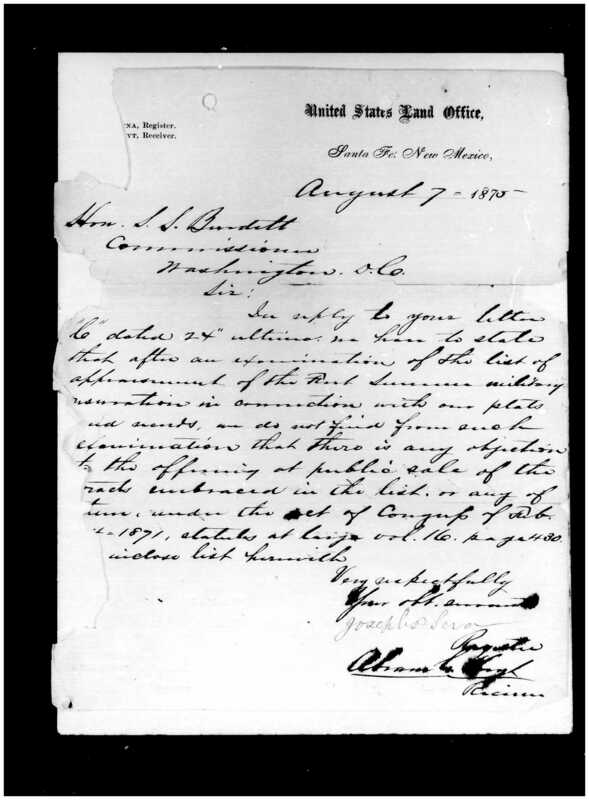 NA, Register.
YT, Receiver.
United States Land Office,
Santa Fe, New Mexico,
August 7 - 1875
Hon. S. S. Burdett
Commissioner
Washington. D.C.
Sir:
In reply to your letter
"C" dated 24" ultimo: we have to state
that after an examination of the list of
appraisement of the Fort Sumner military
reservation in connection with our plats
and records, we do not find from such
examination that there is any objection
to the offering at public sale of the
tracts embraced in the list. or any of
them, under the act of Congress of Feb.
1871, statutes at large vol. 16. page 430.
inclose list herewith
Very respectfully
Your obt. servants
Register
Receiver